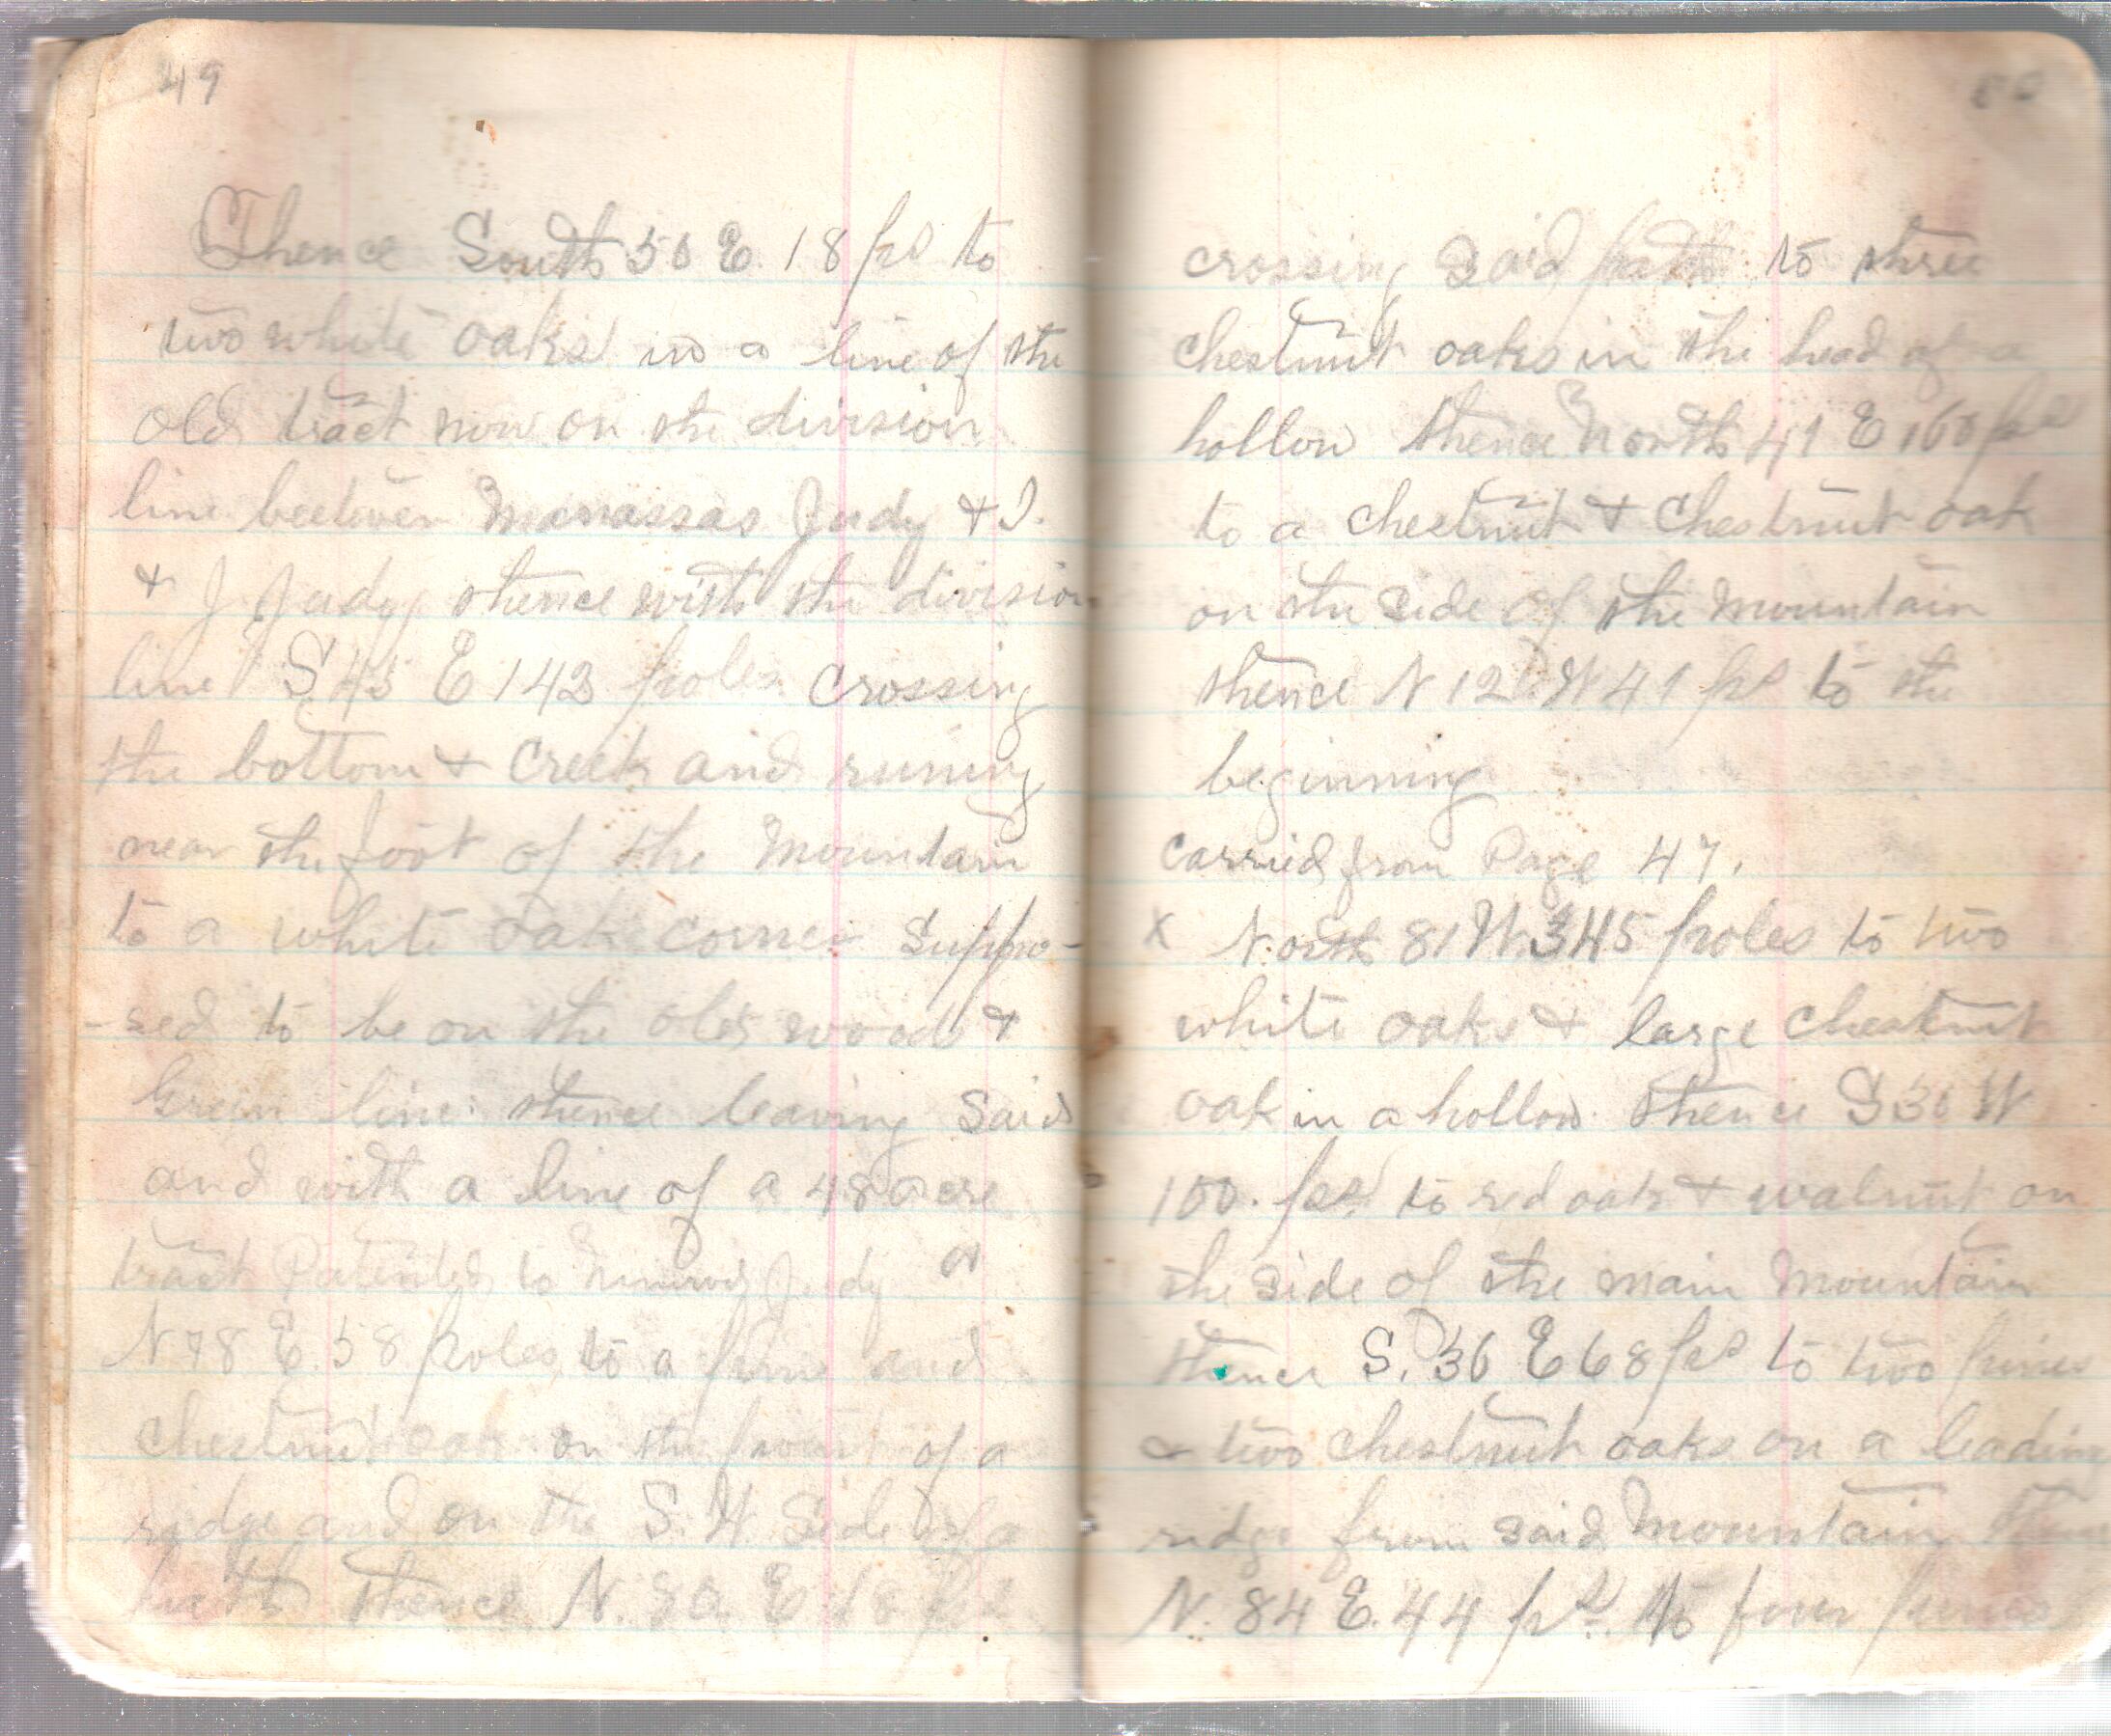 49
Thence South 50 E. 18 pls to
two white oaks in a line of the
old tract now on the division
line beetween Manassas Judy & I.
& J Judy thence with the division
line S 45 E 142 poles crossing
the bottom & Creek and runing
near the foot of the Mountain
to a white oak corner suppo-
-sed to be on the old wood &
Green line thence leaving said
and with a line of a 48 acre
tract Patented to Judy
N 78 E. 58 poles to a pine and
chestnut oak on the point of a
ridge and on the S. W. Side of a
path thence N. E 18 pls
50
crossing said path to three
chestnut oaks in the head of a
hollow thence North 41 E 160 pls
to a chestnut & Chestnut oak
on the side of the Mountain
thence N 12 W 41 pls to the
beginning
carried from Page 47.
x North 81 W. 345 poles to two
white oaks & large chestnut
oak in a hollow thence S 30 W
100. pls. to red oak & walnut on
the side of the main Mountain
thence S. 36 E 68 pls to two pines
& two chestnut oaks on a leading
ridge from said Mountain thence
N. 84 E. 44 pls. to four pines